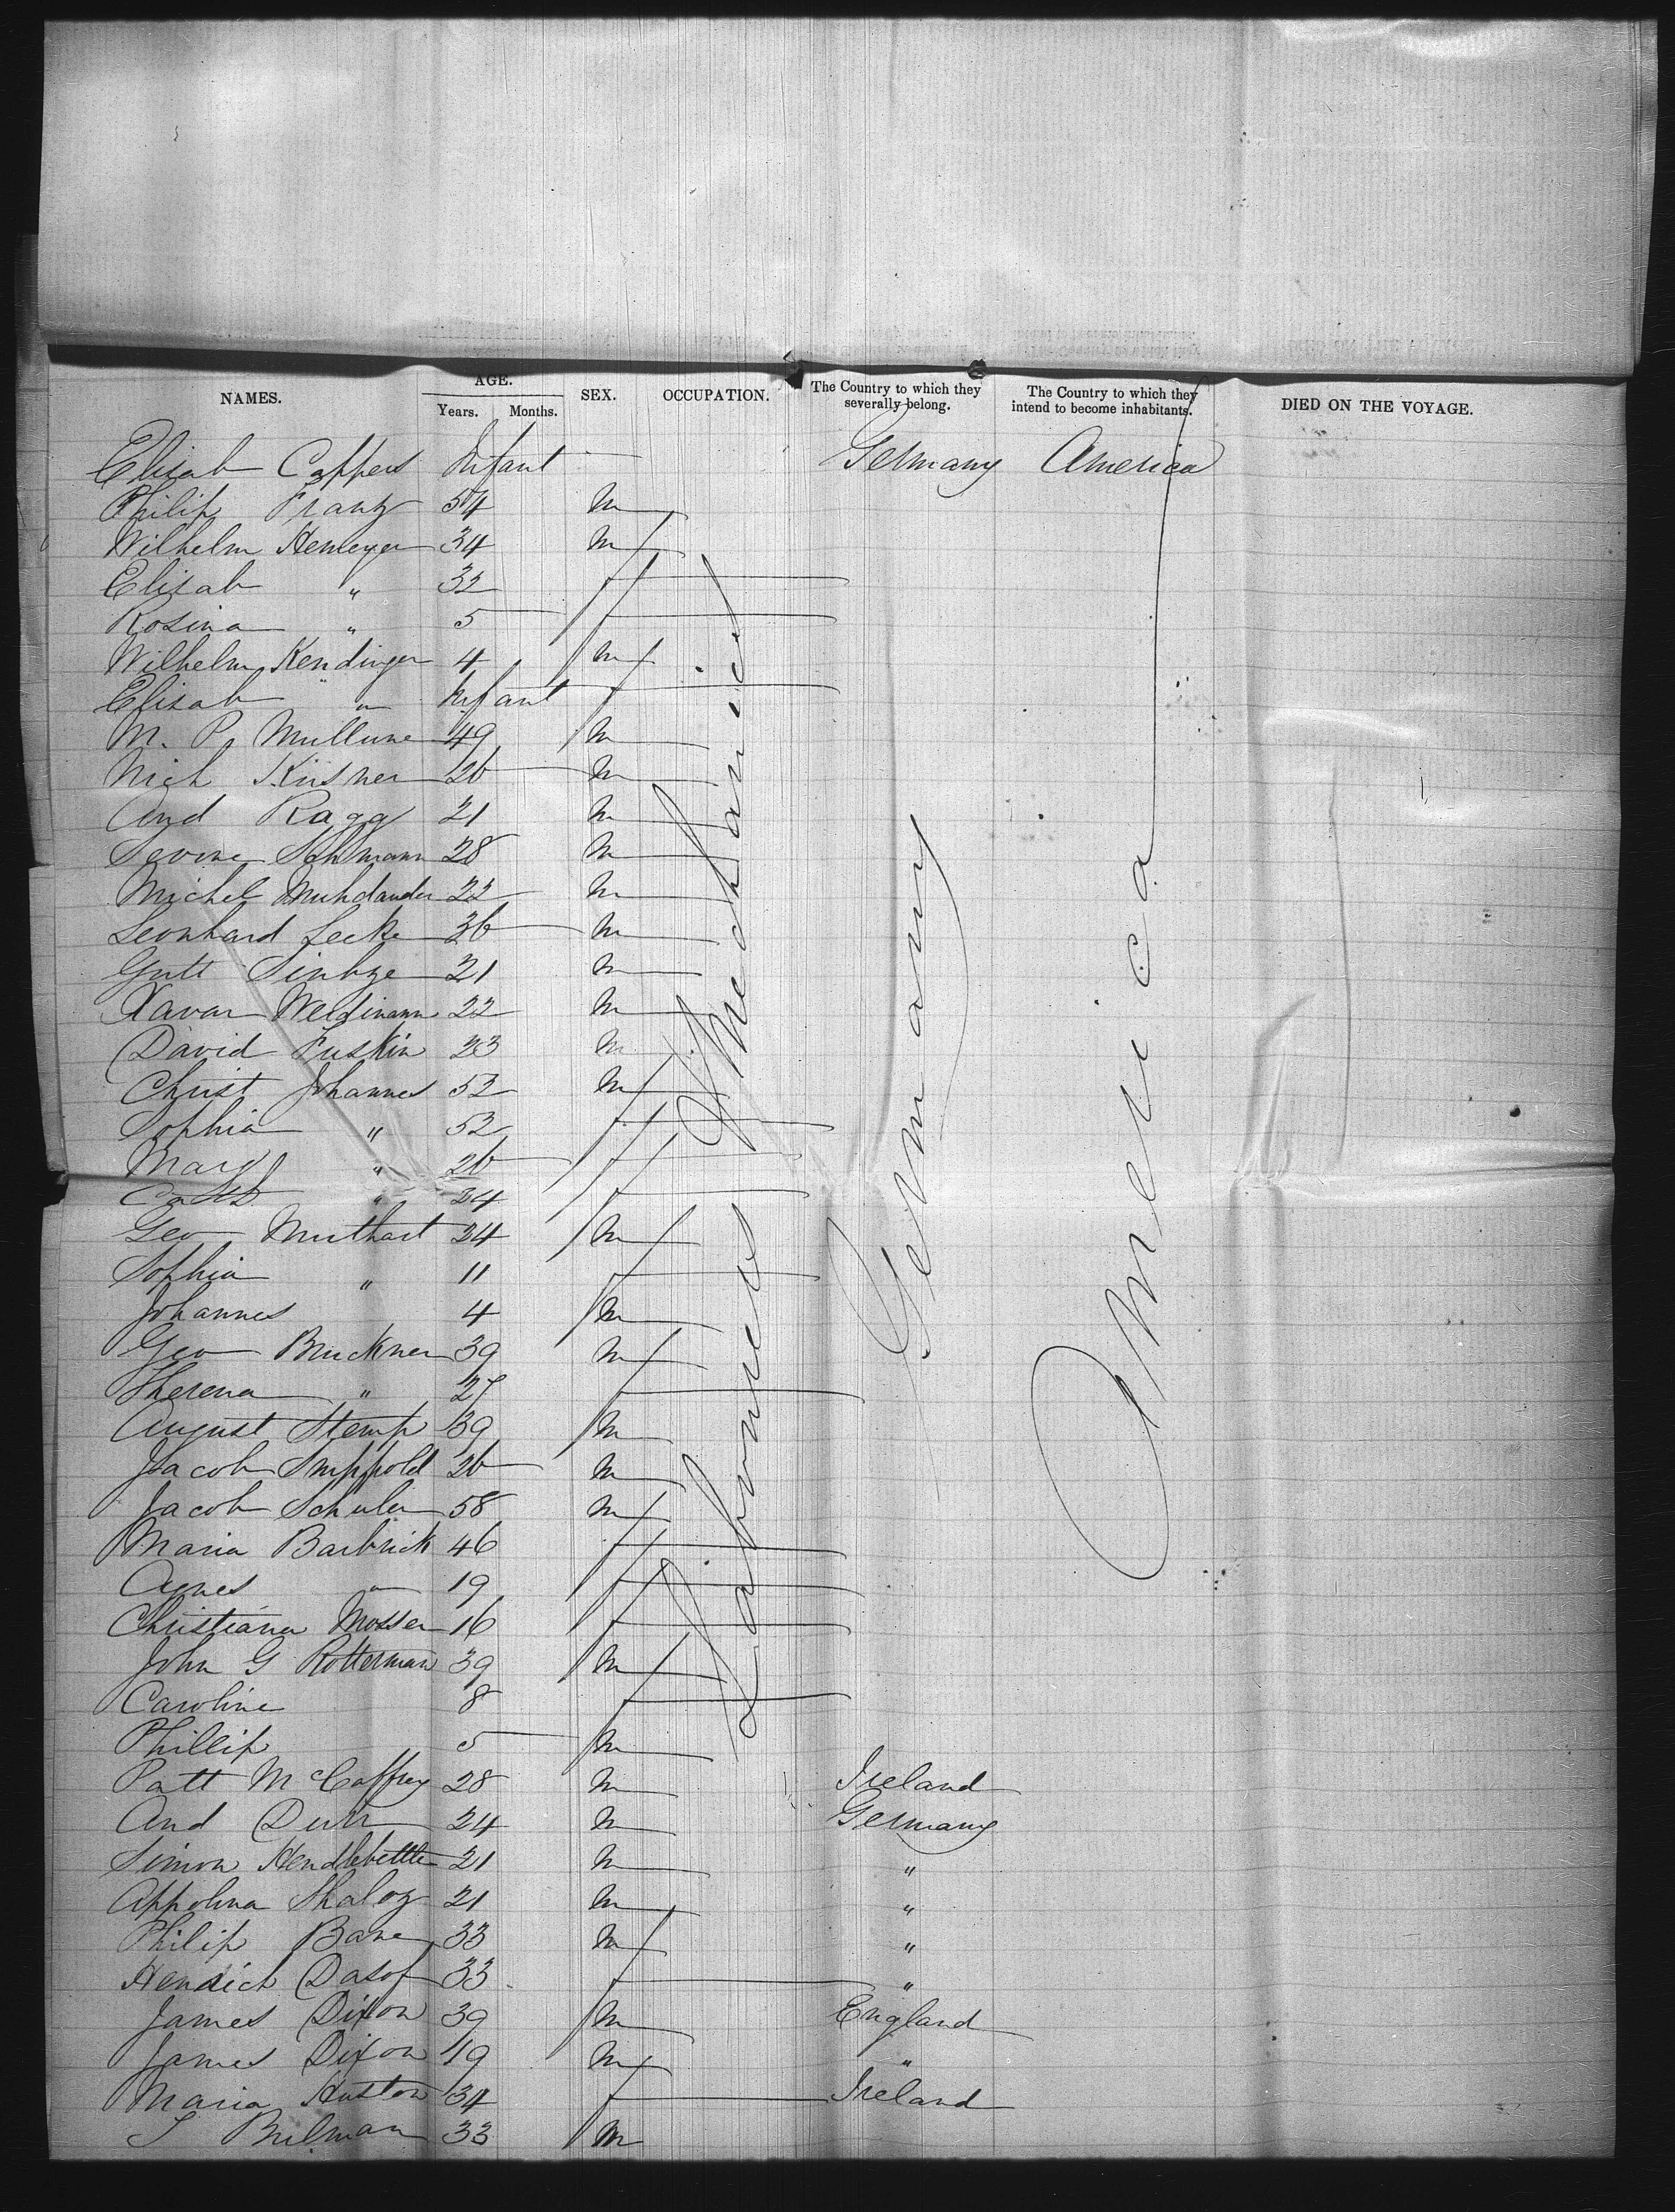 NAMES. AGE. Years. Months. SEX. OCCUPATION. The Country to which they severally belong. The Country to which they intend to become inhabitants. DIED ON THE VOYAGE.
Elisab Coppers Infant Germany America
Philip Frantz 54 M
Wilhelm Hemeyer 34 M
Elisab " 32 f
Rosina " 5 f
Wilhelm Kendinger 4 M
Elisab " Infant f
M. P. Mullune 49 M
Nich Kusner 26 M
And Ragg 21 M
28 M
Michel 22 M
Leonhard Lecke 36 M
21 M
Xavar Weldimann 22 M
David Fuskin 23 M
Christ Johannes 52 M
Sophia " 52 f
Mary " 26 f
Cath " 24 f
Geo Muthart 24 M
Sophia " 11 f
Johannes 4 M
Geo Bruckner 39 M
Therena " 27 f
August Stemp 39 M
Jacob 26 M
Jacob Schuler 58 M
Maria Barbrick 46 f
Agnes " 19 f
Christiana Mosser 16 f
John G Rotterman 39 M
Caroline 8 f
Phillip 5 M
Patt McCaffrey 28 M Ireland
And Durr 24 M Germany
Simon 21 M "
Appolina 21 M "
Philip Bane 33 M "
Henrich Dasof 33 f "
James Dixon 39 M England
James Dixon 19 M "
Maria Huston 34 f Ireland
33 M
Labourers & Mechanics
Germany
America